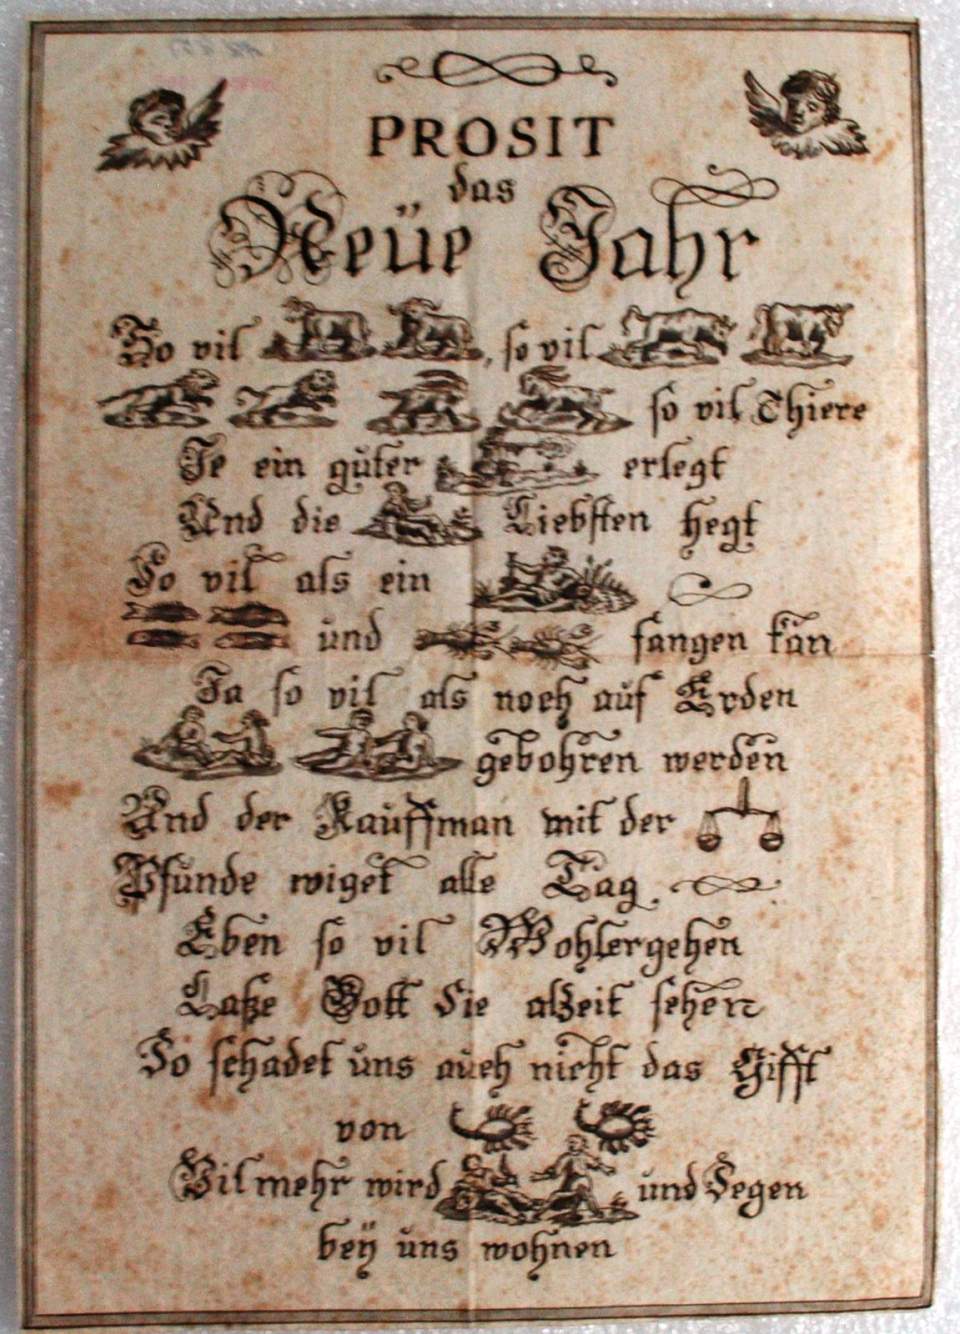 PROSIT
das
Neüe Jahr
So vil , so vil
so vil Thiere
Je ein gůter erlegt
Und die Liebsten hegt
So vil als ein
ůnd fangen kan
Ja so vil als noch aůf Erden
gebohren werden
Und der Kaůffman mit der
Pfůnde wiget alle Tag
Eben so vil Wohlergehen
Laße Gott Sie alzeit sehen
So schadet ůns aůch nicht das Gifft
von
Vilmehr wird und Segen
beÿ ůns wohnen